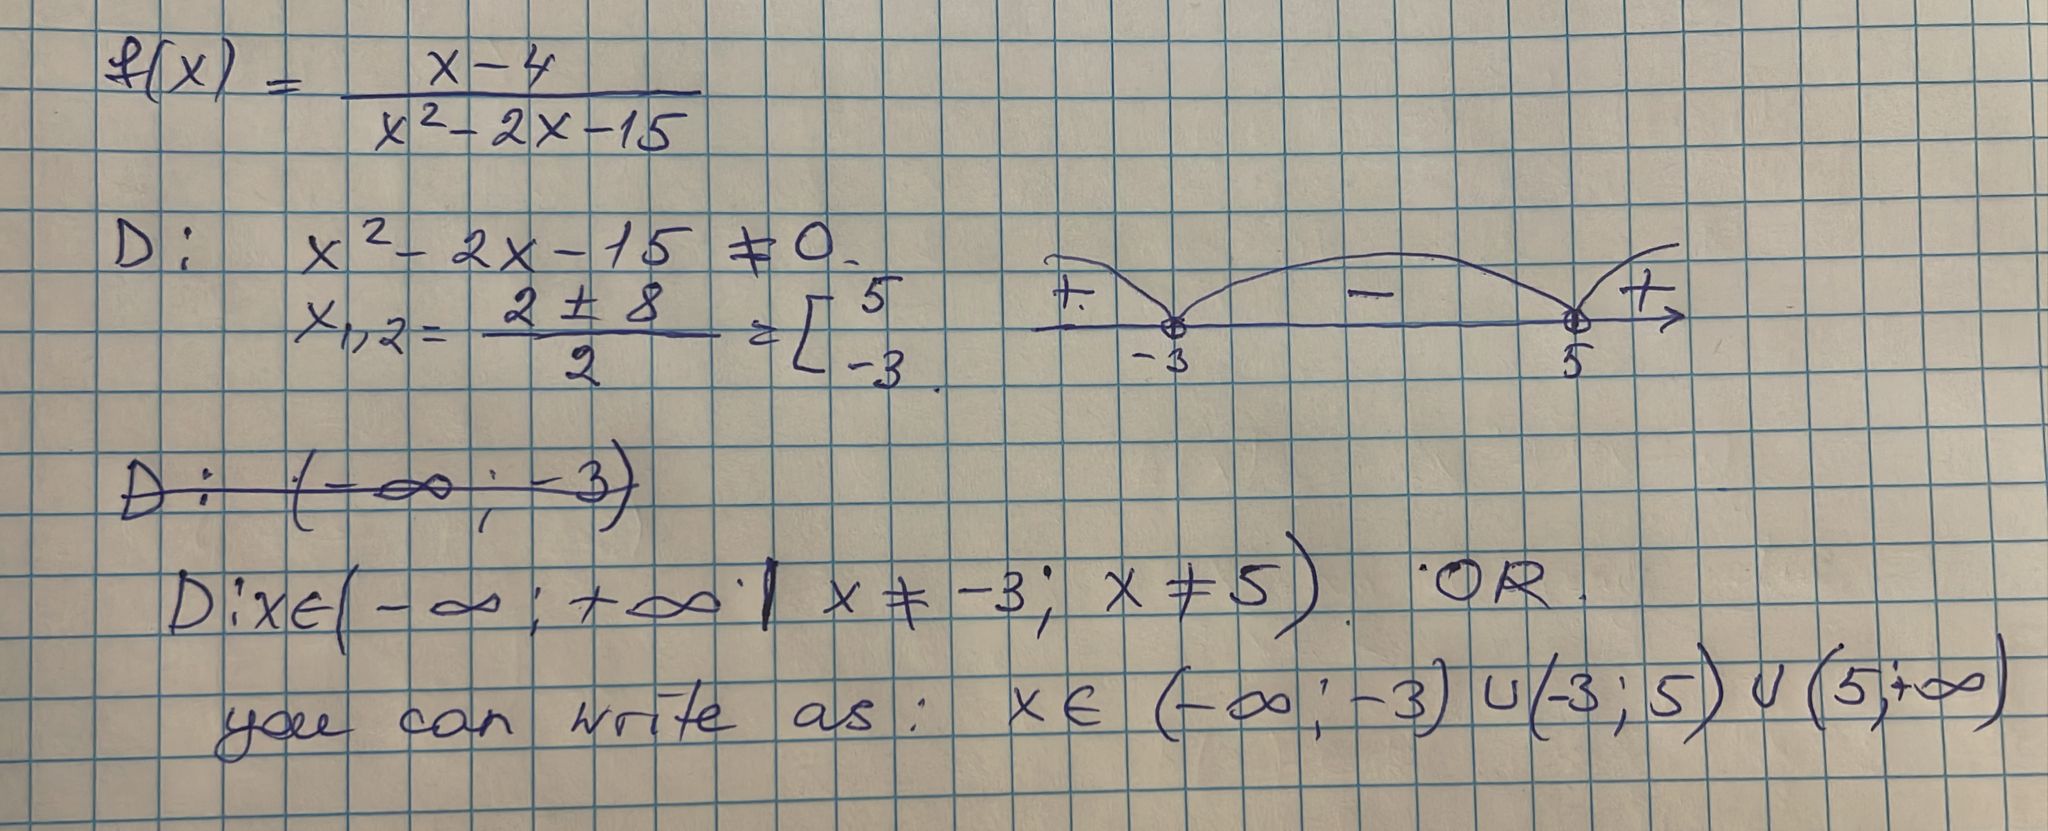 f(x) = (x-4)/(x²-2x-15)
D: x²-2x-15 ≠ 0.
x₁,₂ = (2±8)/2 = [5 -3.
+. - +
-3 5
D: (-∞; -3)
D: x∈(-∞; +∞ | x ≠ -3; x ≠ 5). OR.
you can write as: x∈ (-∞; -3) ∪ (-3; 5) ∪ (5; +∞)